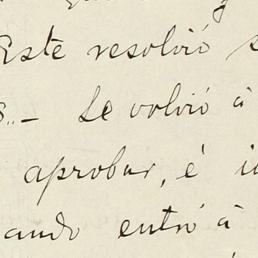 Este resolvió s
s.. — Se volvió à
aprobar, é i
ando entró à